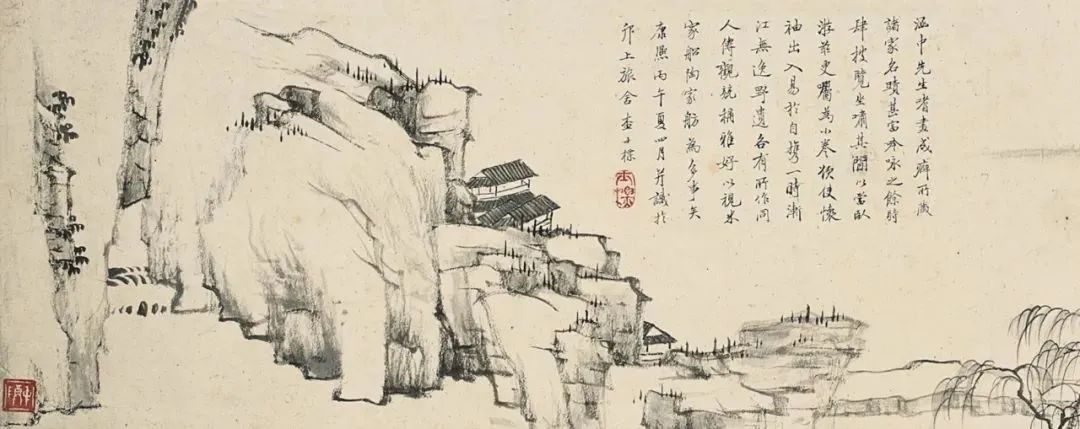 涵中先生嗜畫成癖所藏
諸家名蹟甚富吟咏之餘時
肆披覽坐嘯其間以當臥
遊茲更屬為小卷欲使懷
袖出入易於自攜一時漸
江無逸野遺各有所作同
人傳觀競稱雅好以視米
家船陶家舫為多事矣
康熙丙午夏四月并識於
邗上旅舍查士標
士標